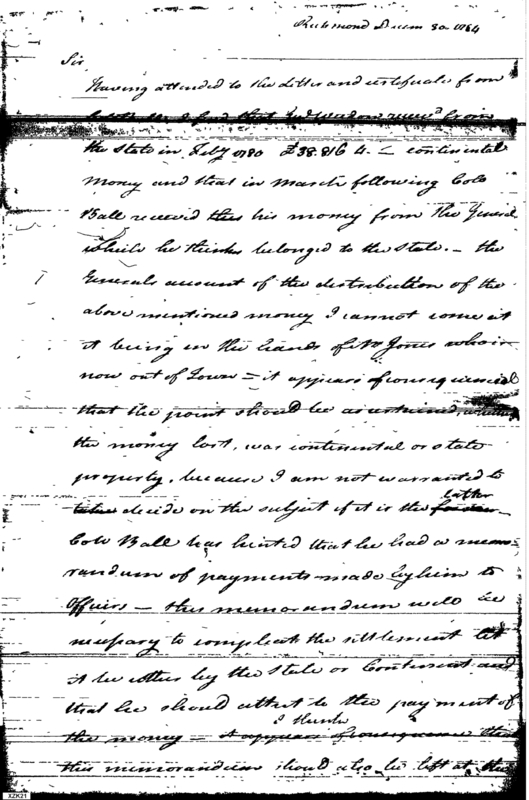 Richmond Decem 30. 1784
Sir
Having attended to the Letter and certificate from
I find that from
the State in Feby 1780 £38.816 4. — continental
money and that in March following Colo
Ball received this his money from the General
which he thinks belonged to the State. — the
Generals account of the distribution of the
above mentioned money I cannot come at
it being in the hands of Mr Jones who is
now out of Town = it appears of consequence
that the point should be ascertained, whether
the money lost, was continental or state
property, because I am not warranted to
decide on the subject if it is the latter
Colo Ball has hinted that he had a memo-
randum of payments made by him to
Officers — this memorandum will be
necessary to compleat the settlement let
it be either by the State or Continent and
that he should attest to the payment of
I think
the money — it appears of consequence that
this memorandum should also be left at the
XZK21